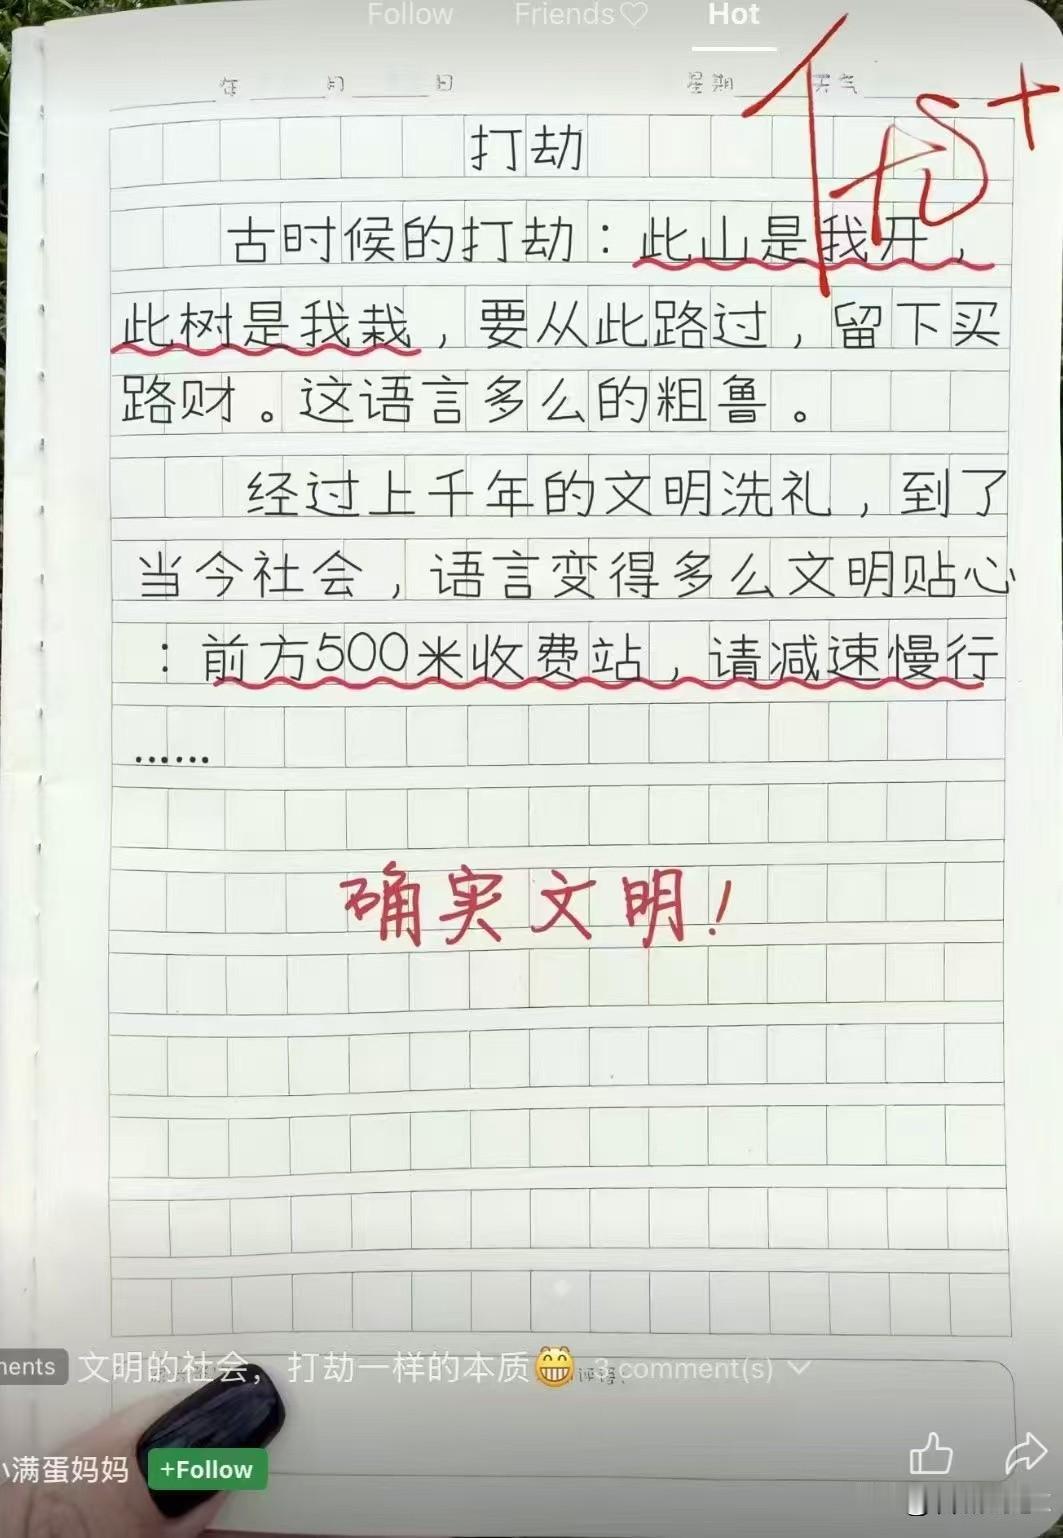 Follow Friends♡ Hot
年 月 日 星期 天气
打劫
古时候的打劫：此山是我开，
此树是我栽，要从此路过，留下买
路财。这语言多么的粗鲁。
经过上千年的文明洗礼，到了
当今社会，语言变得多么文明贴心
：前方500米收费站，请减速慢行
……
确实文明！
ments 文明的社会，打劫一样的本质😁 3 comment(s)
评语：
小满蛋妈妈 +Follow